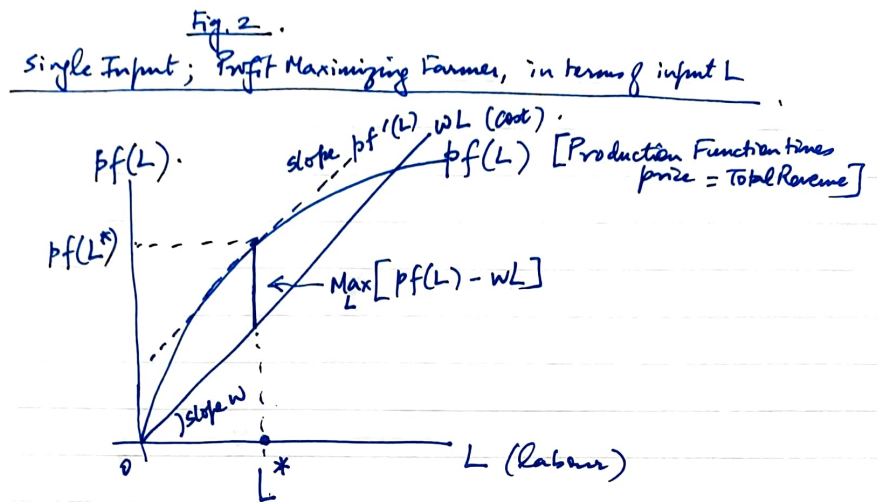 Fig. 2.
Single Input; Profit Maximizing Farmer, in terms of input L
slope pf'(L)
wL (cost).
pf(L).
pf(L) [Production Function times
price = Total Revenue]
pf(L*)
Max[pf(L) - wL]
L
slope w
0
L*
L (labour)